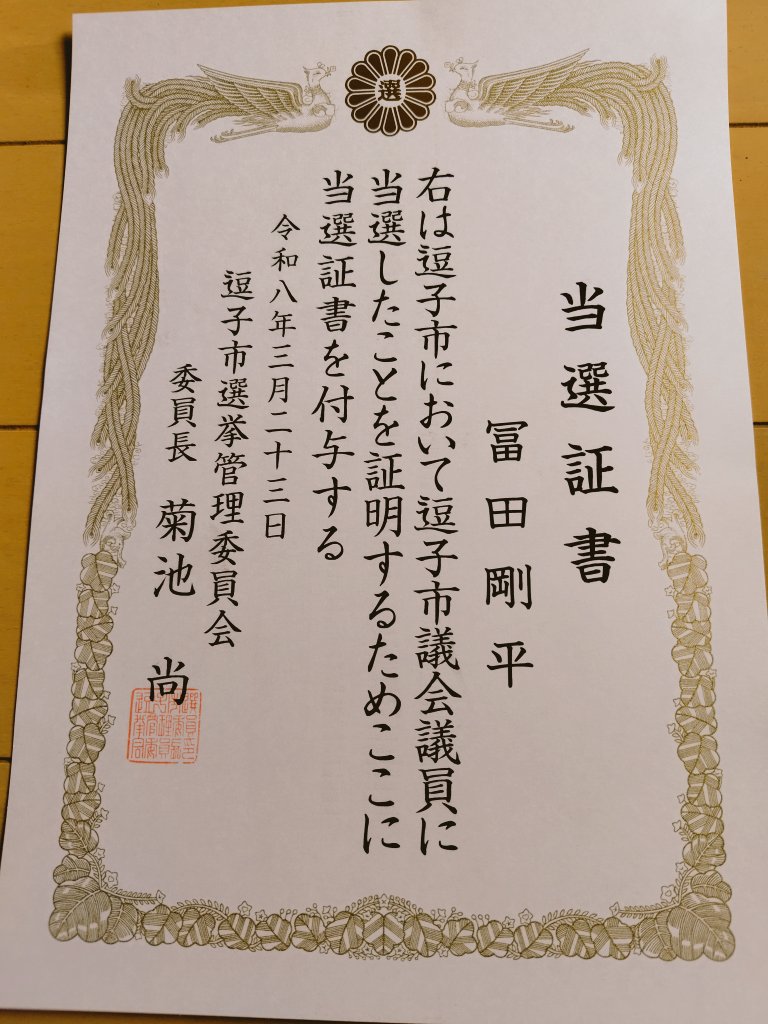 選
当選証書
冨田剛平
右は逗子市において逗子市議会議員に
当選したことを証明するためここに
当選証書を付与する
令和八年三月二十三日
逗子市選挙管理委員会
委員長 菊池 尚